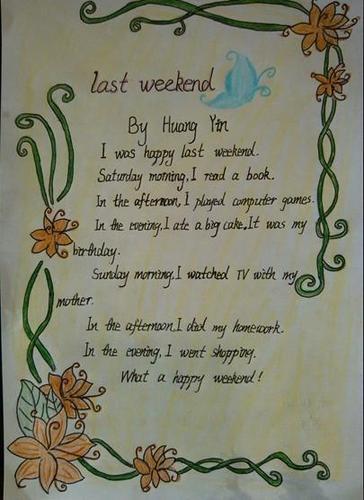 last weekend
By Huang Yin
I was happy last weekend.
Saturday morning, I read a book.
In the afternoon, I played computer games.
In the evening, I ate a big cake, It was my
birthday.
Sunday morning, I watched TV with my
mother.
In the afternoon I did my homework.
In the evening, I went shopping.
What a happy weekend!